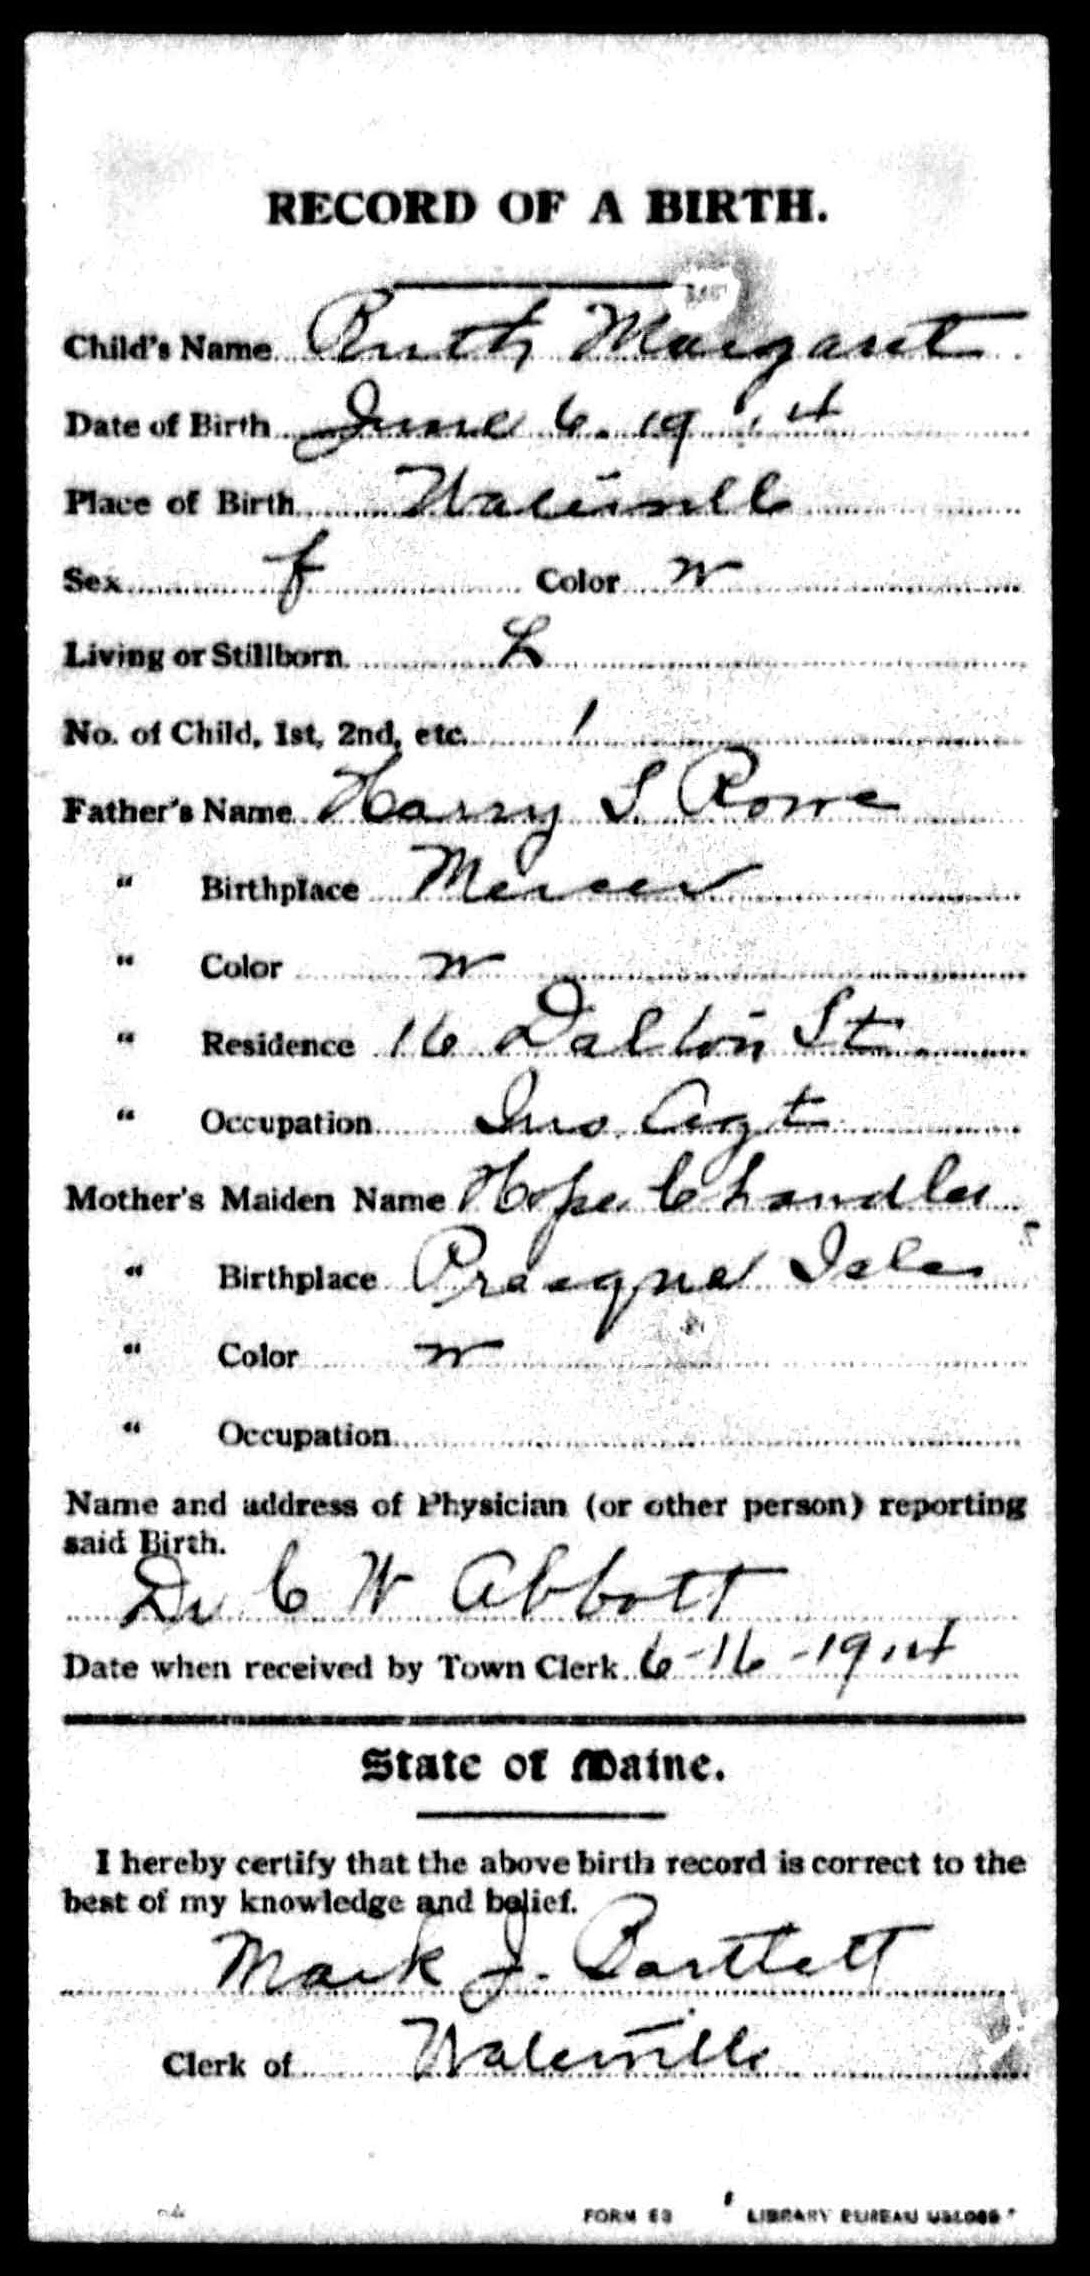 RECORD OF A BIRTH.
Child's Name Ruth Margaret
Date of Birth June 6. 1914
Place of Birth Waterville
Sex f Color W
Living or Stillborn L
No. of Child, 1st, 2nd, etc. 1
Father's Name Harry S Rowe
" Birthplace Mercer
" Color W
" Residence 16 Dalton St
" Occupation Ins. Agt
Mother's Maiden Name Hope Chandler
" Birthplace Presque Isle
" Color W
" Occupation
Name and address of Physician (or other person) reporting
said Birth.
Dr C W Abbott
Date when received by Town Clerk 6-16-1914
State of Maine.
I hereby certify that the above birth record is correct to the
best of my knowledge and belief.
Mark J. Bartlett
Clerk of Waterville
FORM LIBRARY BUREAU